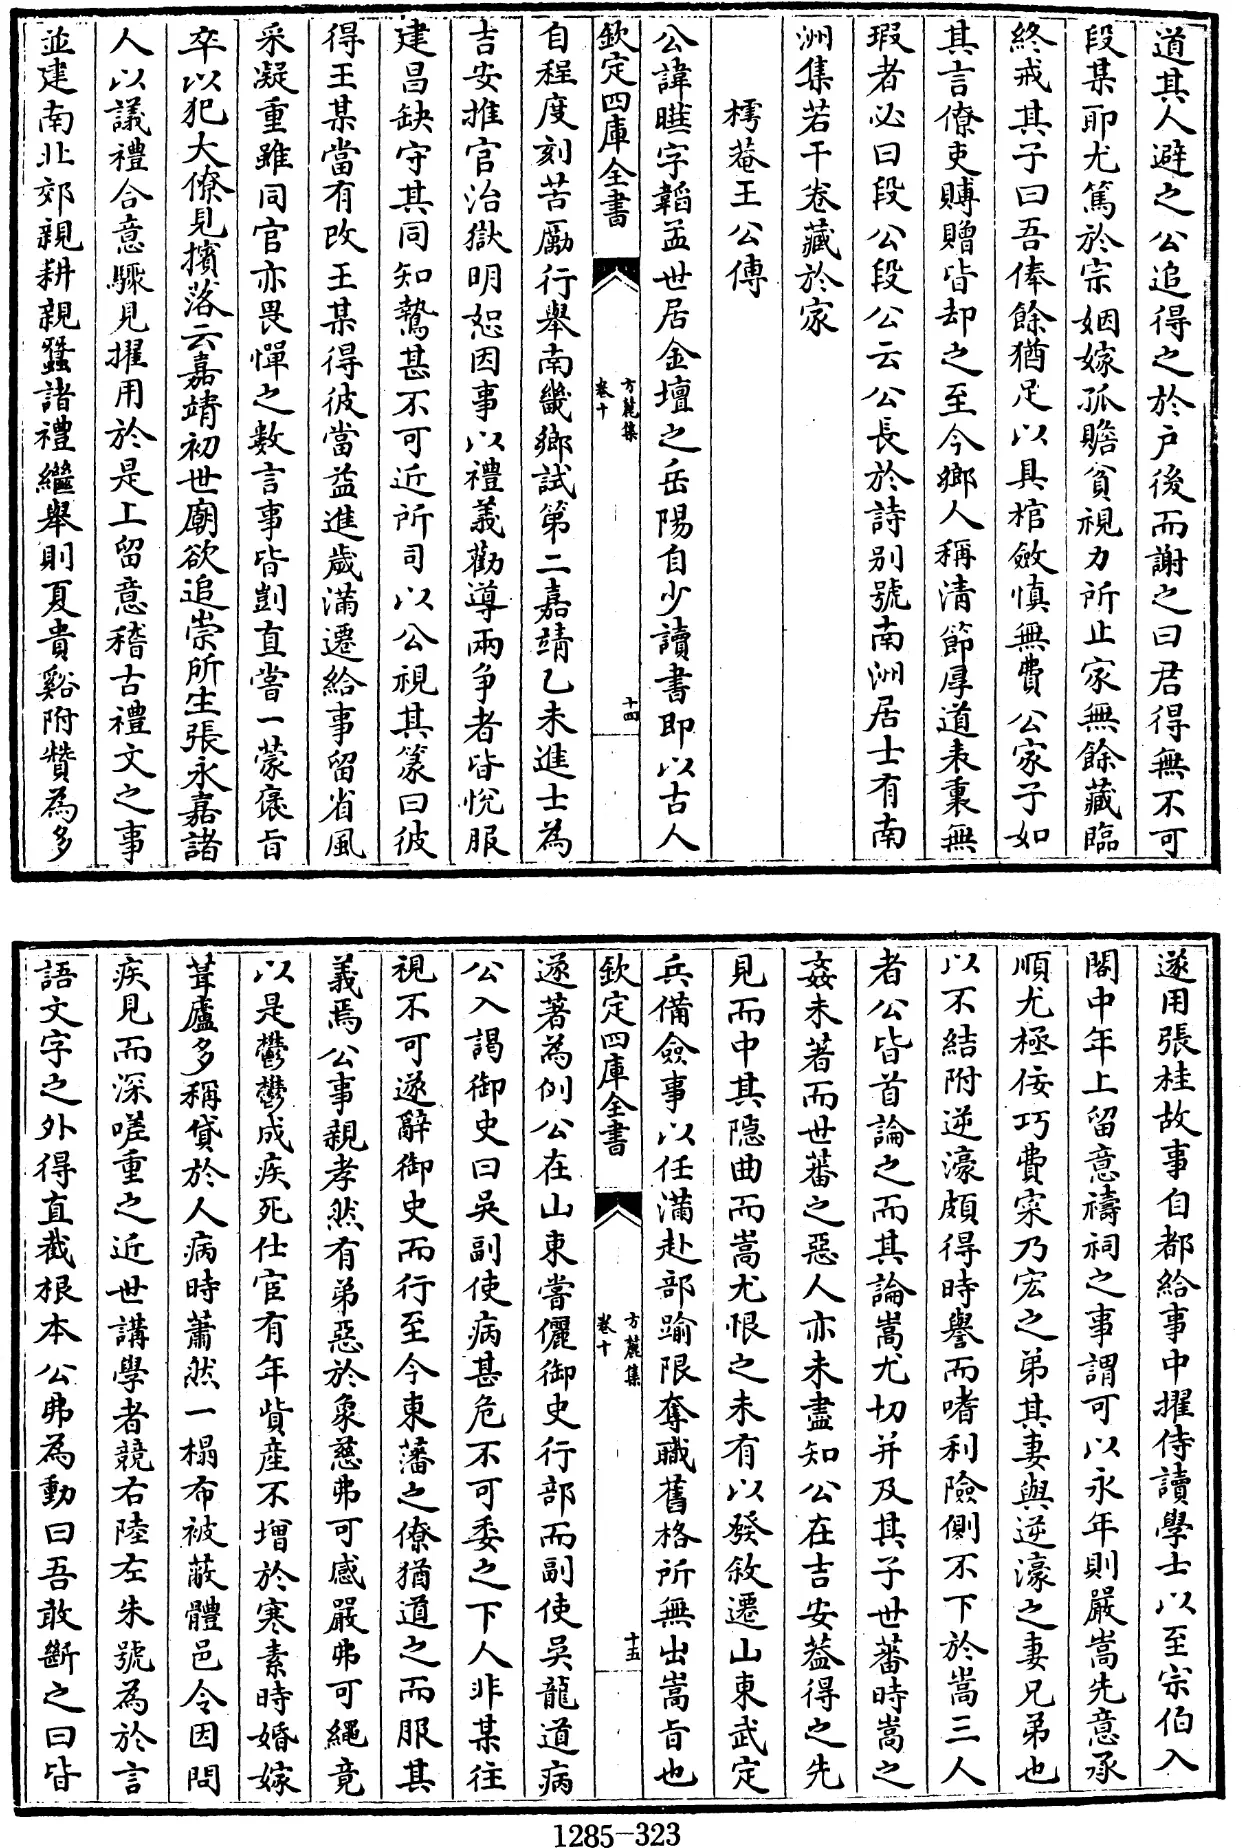 道其人避之公追得之於户後而謝之曰君得無不可
段某耶尤篤於宗姻嫁孤贍貧視力所止家無餘藏臨
終戒其子曰吾俸餘猶足以具棺斂慎無費公家子如
其言僚吏賻贈皆却之至今鄉人稱清節厚道表裏無
瑕者必曰段公段公云公長於詩别號南洲居士有南
洲集若干卷藏於家
樗菴王公傳
公諱曄字韜孟世居金壇之岳陽自少讀書即以古人
欽定四庫全書
方麓集
卷十
十四
自程度刻苦勵行舉南畿鄉試第二嘉靖乙未進士為
吉安推官治獄明恕因事以禮義勸導兩争者皆悅服
建昌缺守其同知驁甚不可近所司以公視其篆曰彼
得王某當有改王某得彼當益進歲滿遷給事留省風
采凝重雖同官亦畏憚之數言事皆剴直嘗一蒙褒旨
卒以犯大僚見擯落云嘉靖初世廟欲追崇所生張永嘉諸
人以議禮合意驟見擢用於是上留意稽古禮文之事
並建南北郊親耕親蠶諸禮繼舉則夏貴谿附贊為多
遂用張桂故事自都給事中擢侍讀學士以至宗伯入
閣中年上留意禱祠之事謂可以永年則嚴嵩先意承
順尤極佞巧費寀乃宏之弟其妻與逆濠之妻兄弟也
以不結附逆濠頗得時譽而嗜利險側不下於嵩三人
者公皆首論之而其論嵩尤切并及其子世蕃時嵩之
姦未著而世蕃之惡人亦未盡知公在吉安葢得之先
見而中其隱曲而嵩尤恨之未有以發敘遷山東武定
兵備僉事以任滿赴部踰限奪職舊格所無出嵩旨也
欽定四庫全書
方麓集
卷十
十五
遂著為例公在山東嘗儷御史行部而副使吳龍道病
公入謁御史曰吳副使病甚危不可委之下人非某往
視不可遂辭御史而行至今東藩之僚猶道之而服其
義焉公事親孝然有弟惡於象慈弗可感嚴弗可繩竟
以是鬱鬱成疾死仕宦有年貲産不增於寒素時婚嫁
葺廬多稱貸於人病時蕭然一榻布被蔽體邑令因問
疾見而深嗟重之近世講學者競右陸左朱號為於言
語文字之外得直截根本公弗為動曰吾敢斷之曰皆
1285-323